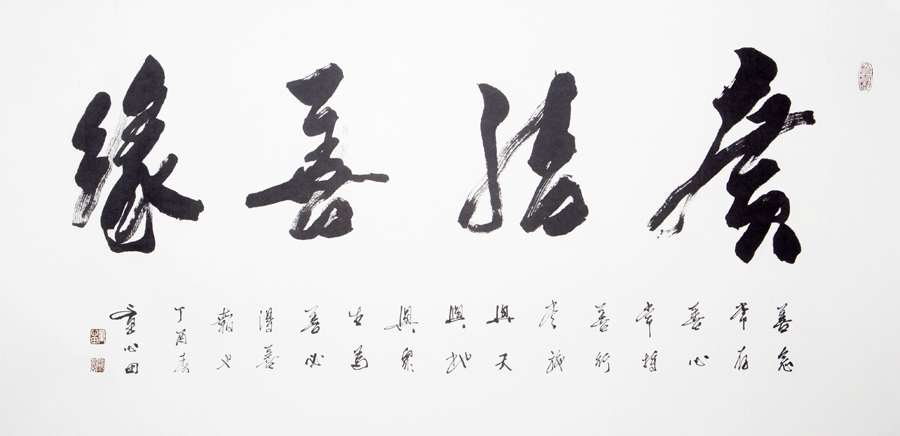 廣結善緣
善念
常存
善心
常持
善行
常施
與天
與地
與眾
生為
善必
得善
報也
丁酉春
童心田